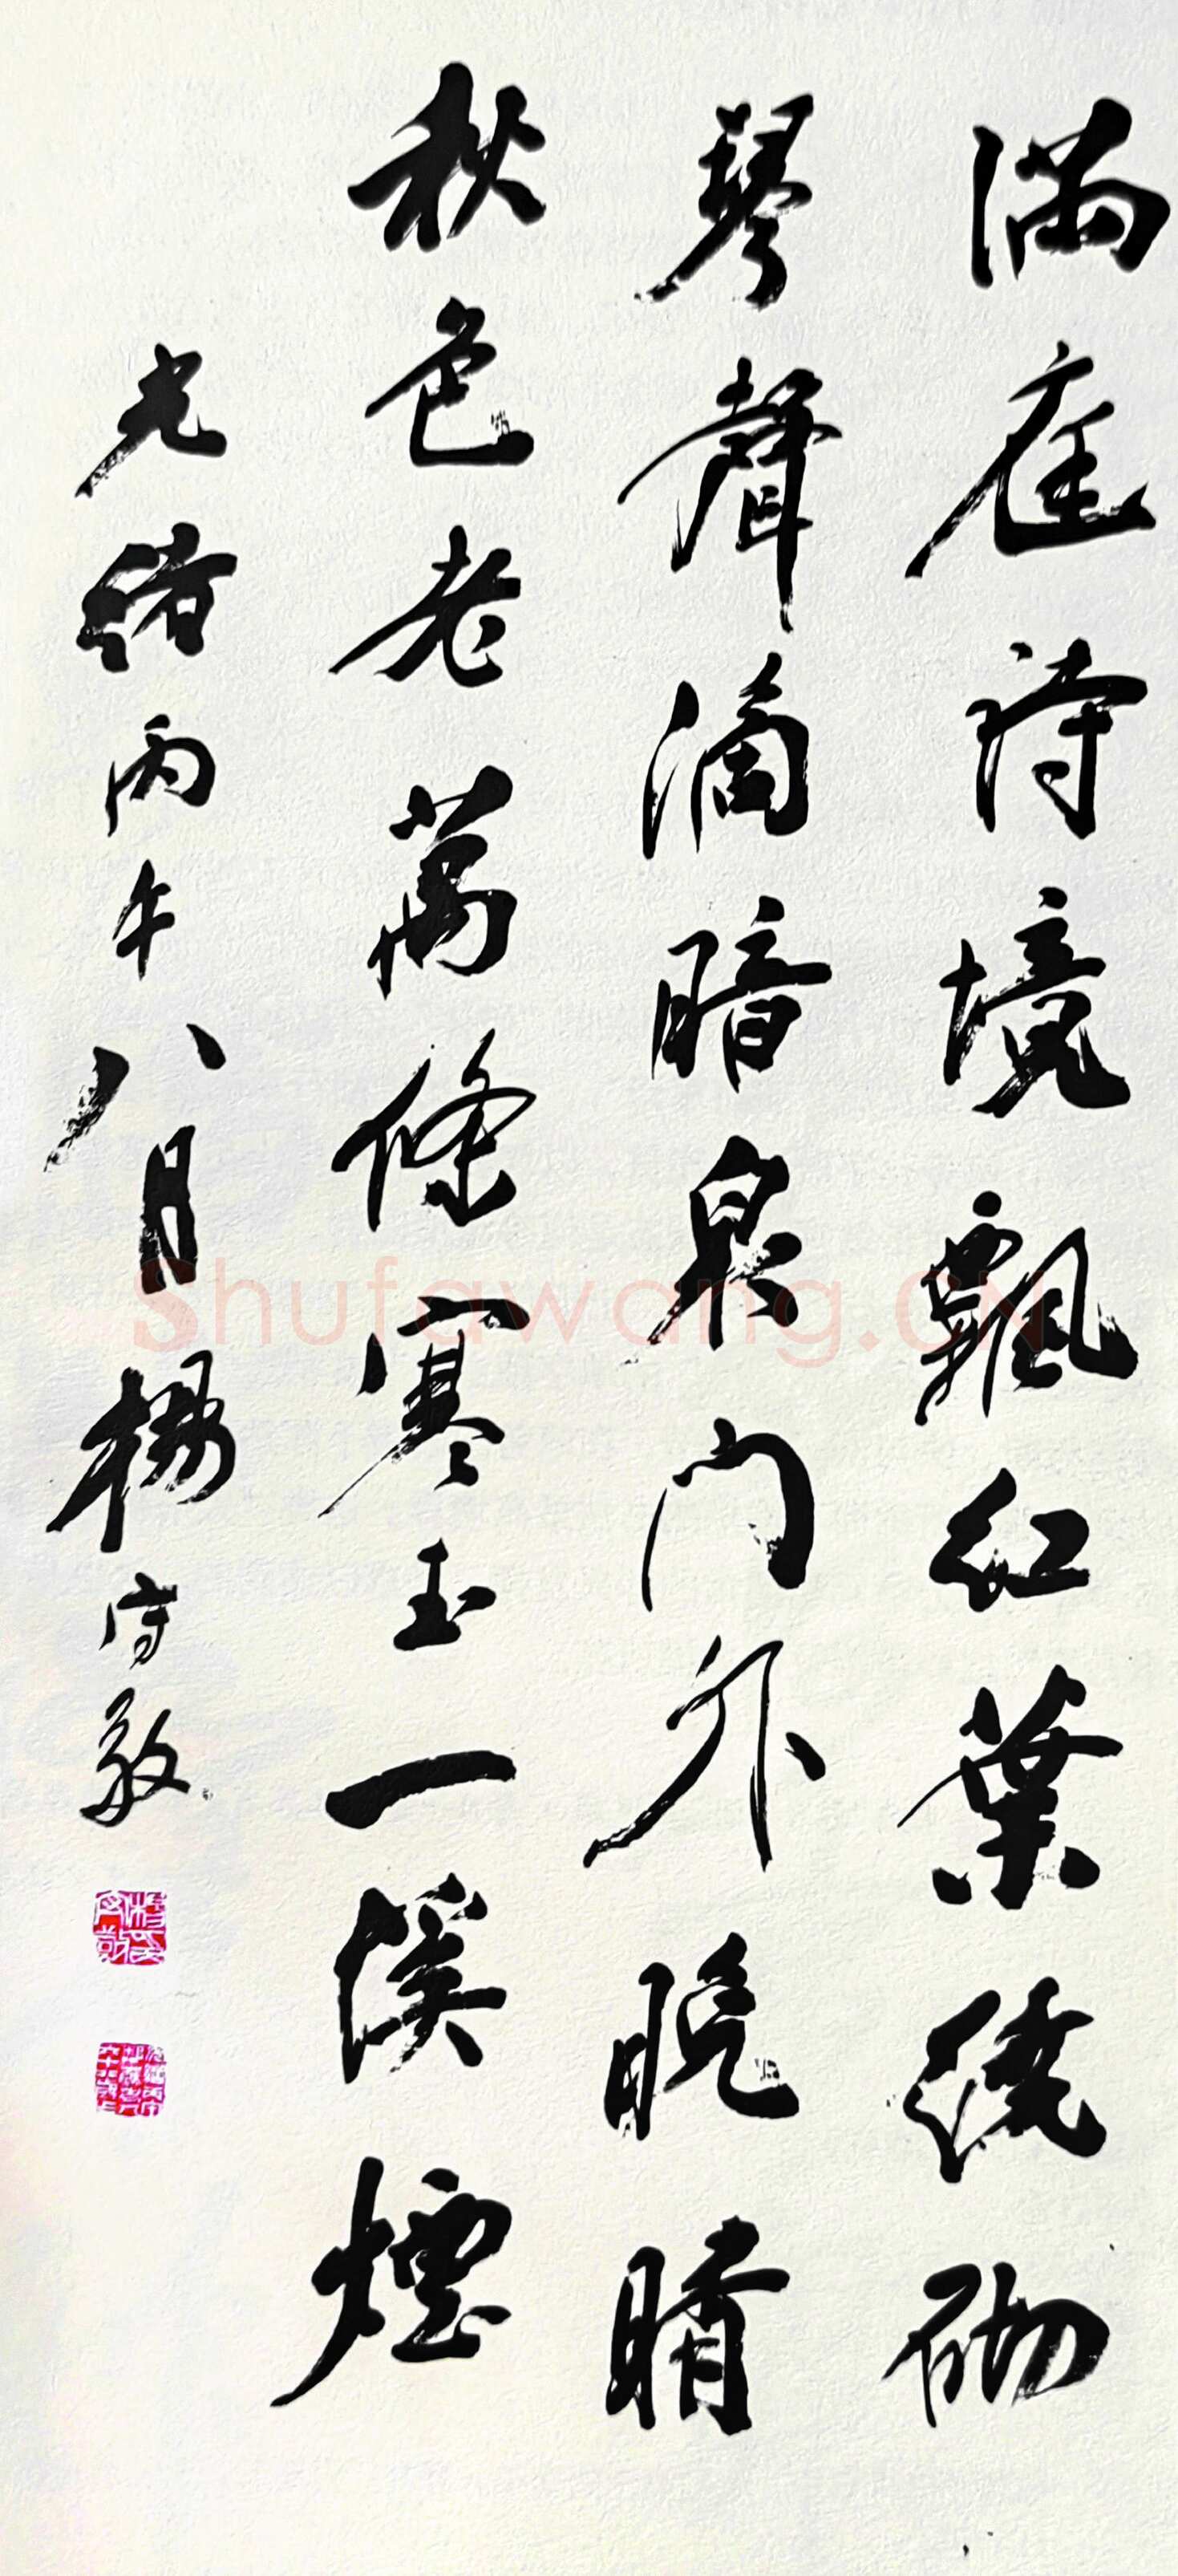 滿庭詩境飄紅葉繞砌
琴聲滴暗泉門外晚晴
秋色老萬條寒玉一溪煙
光緒丙午八月楊守敬
Shufawang.CN